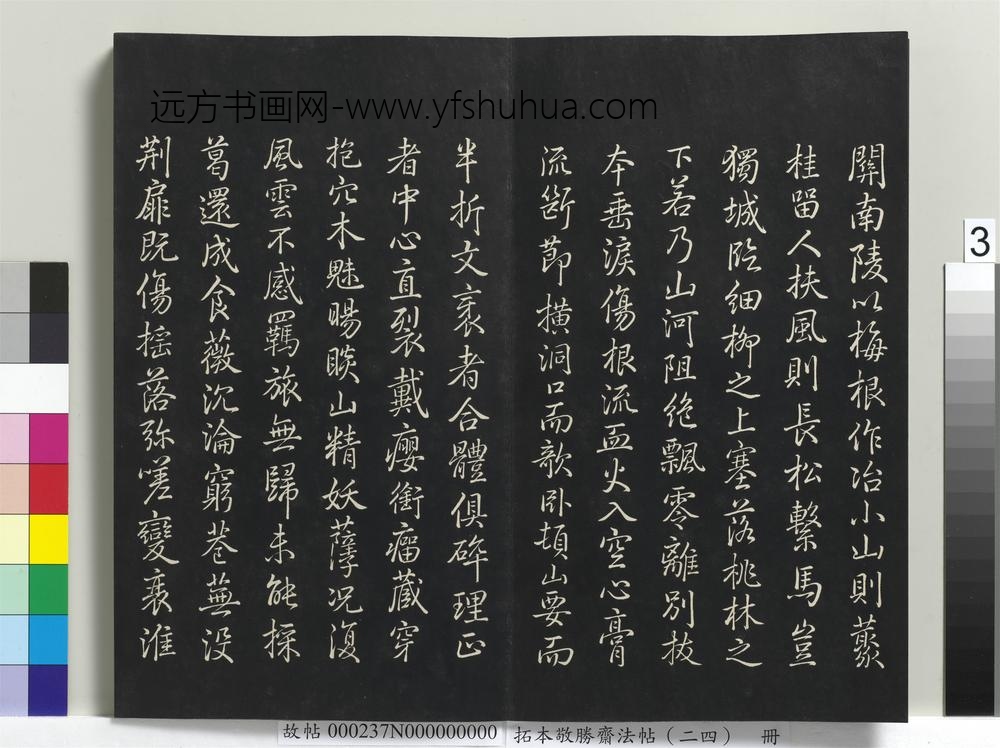 远方书画网-www.yfshuhua.com
關南陵以梅根作冶小山則藂
桂留人扶風則長松繫馬豈
獨城臨細柳之上塞落桃林之
下若乃山河阻絶飄零離別拔
本垂淚傷根流血火入空心膏
流断節橫洞口而欹臥頓山要而
半折文袤者合體俱碎理正
者中心直裂戴癭銜瘤藏穿
抱穴木魅睗睒山精妖孽况復
風雲不感羈旅無歸未能採
葛還成食薇沉淪窮巷蕪没
荆扉既傷摇落弥嗟變衰淮
3
故帖 000237N000000000 拓本敬勝齋法帖（二四） 冊